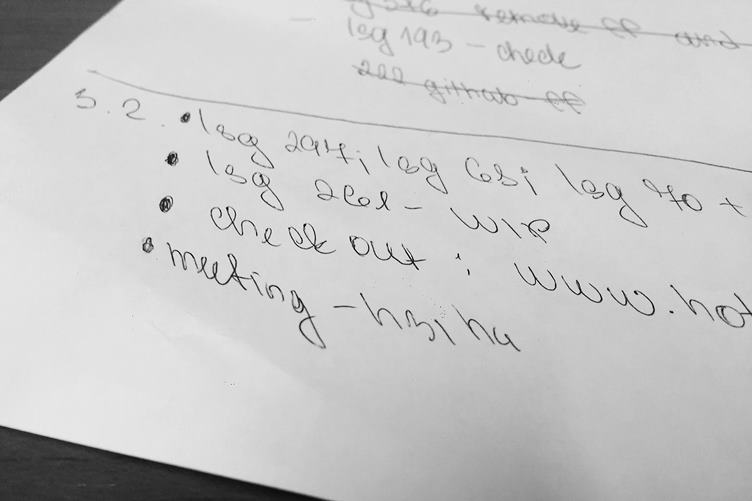 remove ff and
- lsg 193 - check
222 github ff
5.2. • lsg 294; lsg 68; lsg 970 +
• lsg 2601 - WIP
• check out : www.hot
• meeting -